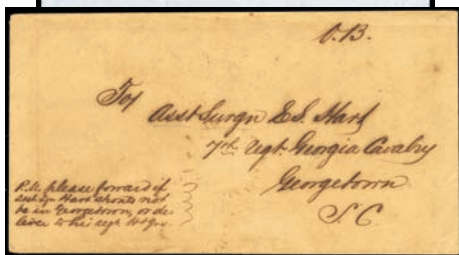 O.B.
To/
Asst Surgn E.S. Hart
7th Regt. Georgia Cavalry
Georgetown
S.C.
P.M. please forward if
Hart should not
be in Georgetown, or de
liver to his regt.